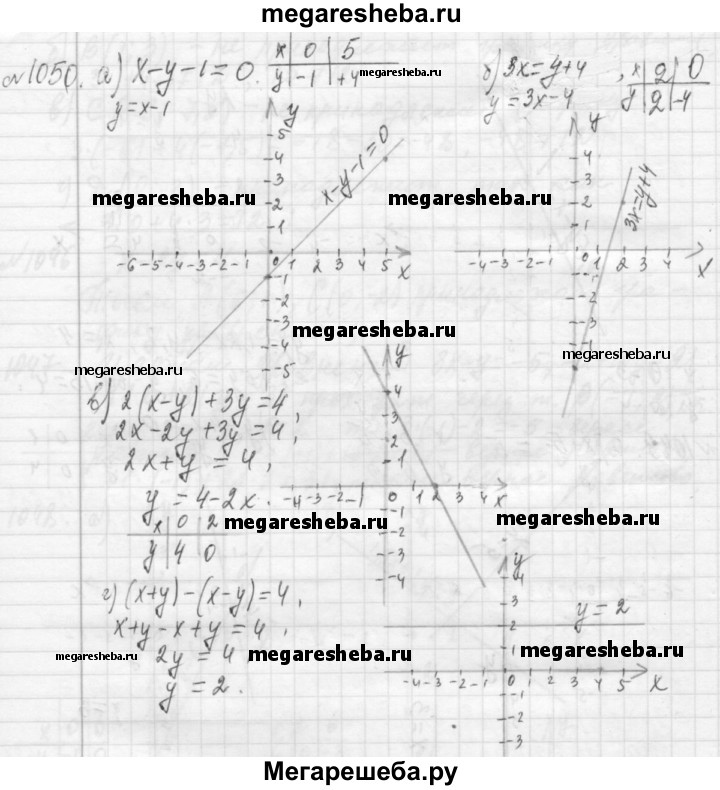 megaresheba.ru
№1050. а) x-y-1=0. x | 0 | 5
y | -1 | +4
y=x-1
б) 3x=y+4, x | 2 | 0
y=3x-4 y | 2 | -4
megaresheba.ru
y
5
4
3
2
1
x-y-1=0
-6 -5 -4 -3 -2 -1 0 1 2 3 4 5 x
-1
-2
-3
-4
-5
megaresheba.ru
y
4
3
2
1
3x=y+4
-4 -3 -2 -1 0 1 2 3 4 x
-1
-2
-3
-4
megaresheba.ru
megaresheba.ru
megaresheba.ru
megaresheba.ru
в) 2(x-y)+3y=4,
2x-2y+3y=4,
2x+y=4,
y=4-2x.
x | 0 | 2
y | 4 | 0
megaresheba.ru
y
4
3
2
1
-4 -3 -2 -1 0 1 2 3 4 x
-1
-2
-3
-4
megaresheba.ru
г) (x+y)-(x-y)=4,
x+y-x+y=4,
2y=4
y=2.
megaresheba.ru
megaresheba.ru
y
4
3
2
1
y=2
megaresheba.ru
-4 -3 -2 -1 0 1 2 3 4 5 x
-1
-2
-3
Мегарешеба.ру